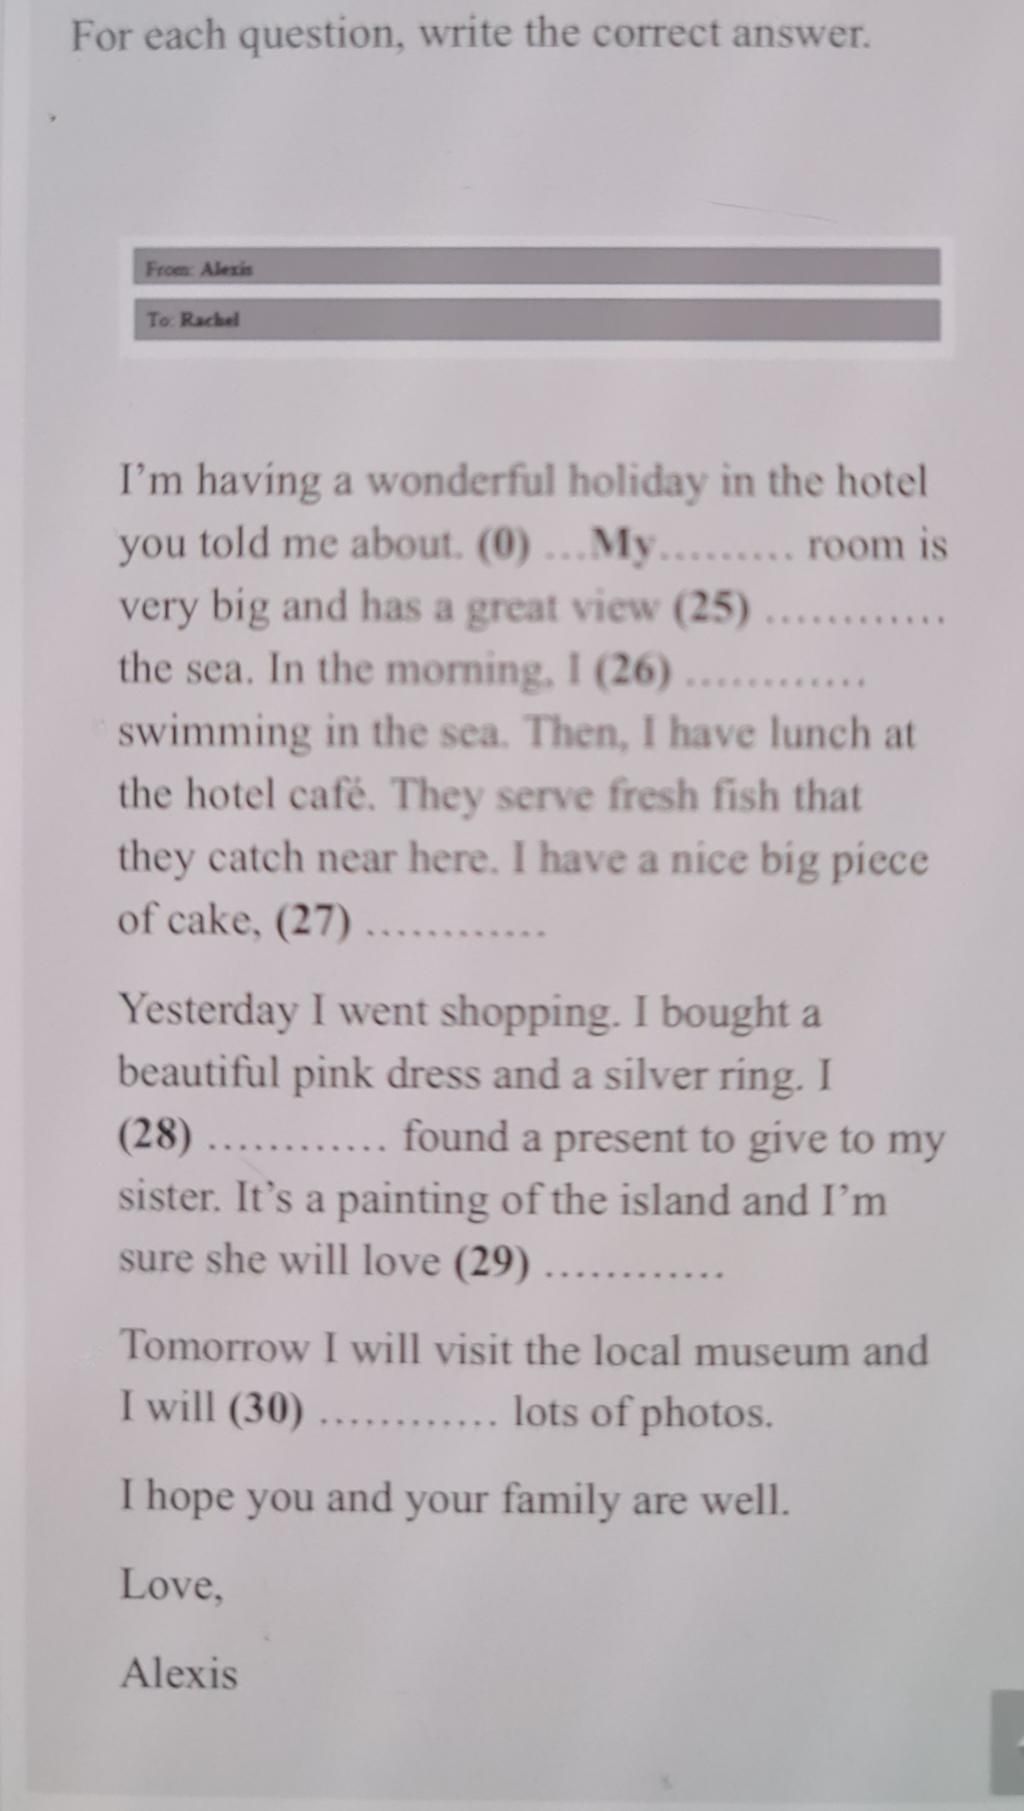 For each question, write the correct answer.
From: Alexis
To: Rachel
I'm having a wonderful holiday in the hotel
you told me about. (0) ...My......... room is
very big and has a great view (25) ............
the sea. In the morning, I (26) ............
swimming in the sea. Then, I have lunch at
the hotel café. They serve fresh fish that
they catch near here. I have a nice big piece
of cake, (27) ............
Yesterday I went shopping. I bought a
beautiful pink dress and a silver ring. I
(28) ............ found a present to give to my
sister. It's a painting of the island and I'm
sure she will love (29) ............
Tomorrow I will visit the local museum and
I will (30) ............ lots of photos.
I hope you and your family are well.
Love,
Alexis